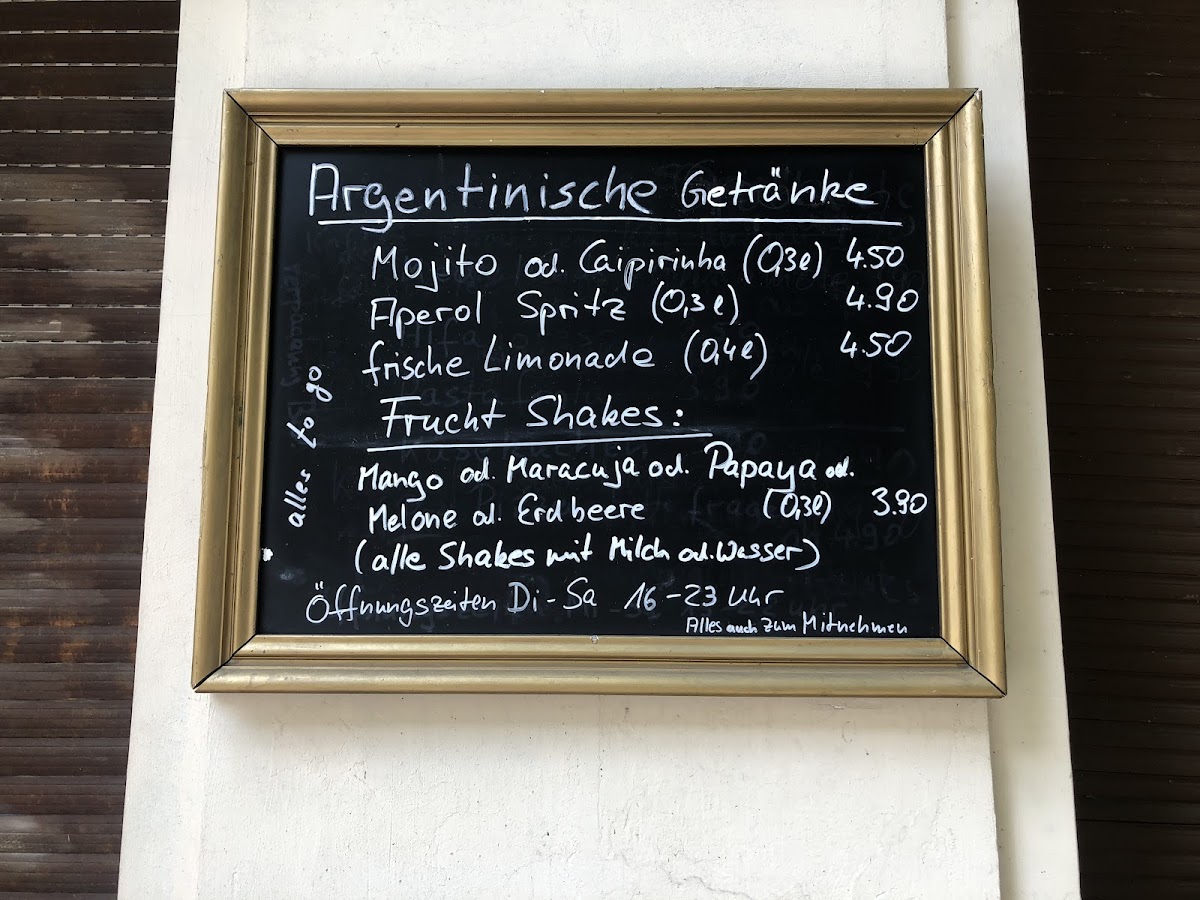 Argentinische Getränke
Mojito od. Caipirinha (0,3l) 4.50
Aperol Spritz (0,3l) 4.90
frische Limonade (0,4l) 4.50
Frucht Shakes:
Mango od. Maracuja od. Papaya od.
Melone od. Erdbeere (0,3l) 3.90
(alle Shakes mit Milch od. Wasser)
Öffnungszeiten Di-Sa 16-23 Uhr
Alles auch zum Mitnehmen
alles to go